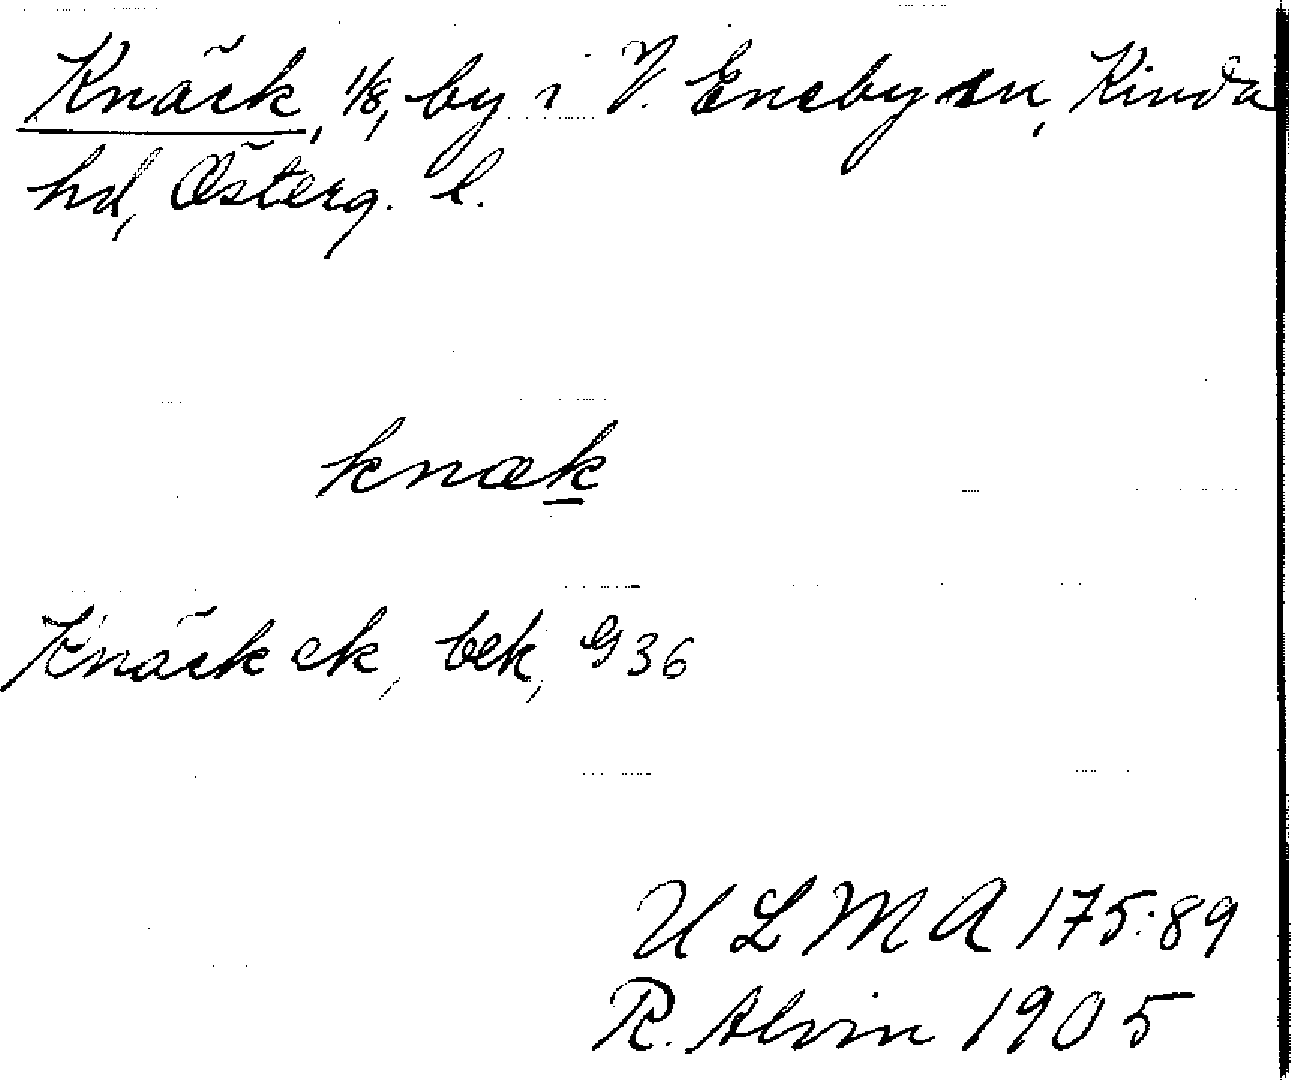 Knäck, 1/8, by i V. Eneby sn, Kinda
hd, Österg. l.
knæk
Knäck ek, bek, G 36
ULMA 175:89
R. Alvin 1905